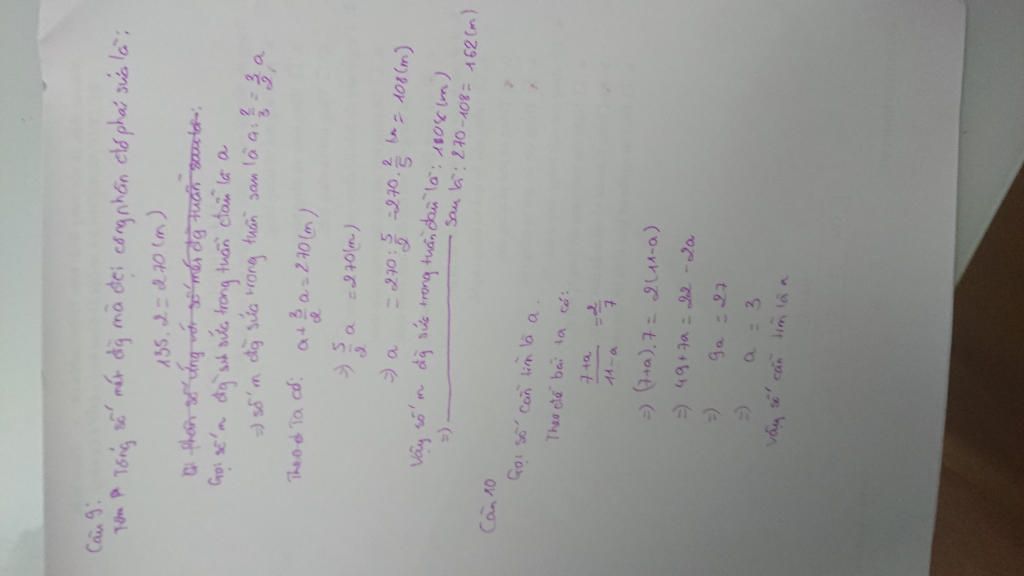 Câu 9:
Tổng số mét đg mà đội công nhân đó phải sửa là:
135.2 = 270 (m)
phân số ứng với số mét đg tuần sau là:
Gọi số m đg sửa trong tuần đầu là a
=> số m đg sửa trong tuần sau là a : 2/3 = 3/2 a
Theo đề ta có: a + 3/2 a = 270 (m)
=> 5/2 a = 270 (m)
=> a = 270 : 5/2 = 270 . 2/5 = 108 (m)
Vậy số m đg sửa trong tuần đầu là: 108 (m)
=> ____ sau là: 270 - 108 = 162 (m)
Câu 10
Gọi số cần tìm là a.
Theo đề bài ta có:
7+a / 11-a = 2/7
=> (7+a).7 = 2(11-a)
=> 49 + 7a = 22 - 2a
=> 9a = 27
=> a = 3
Vậy số cần tìm là